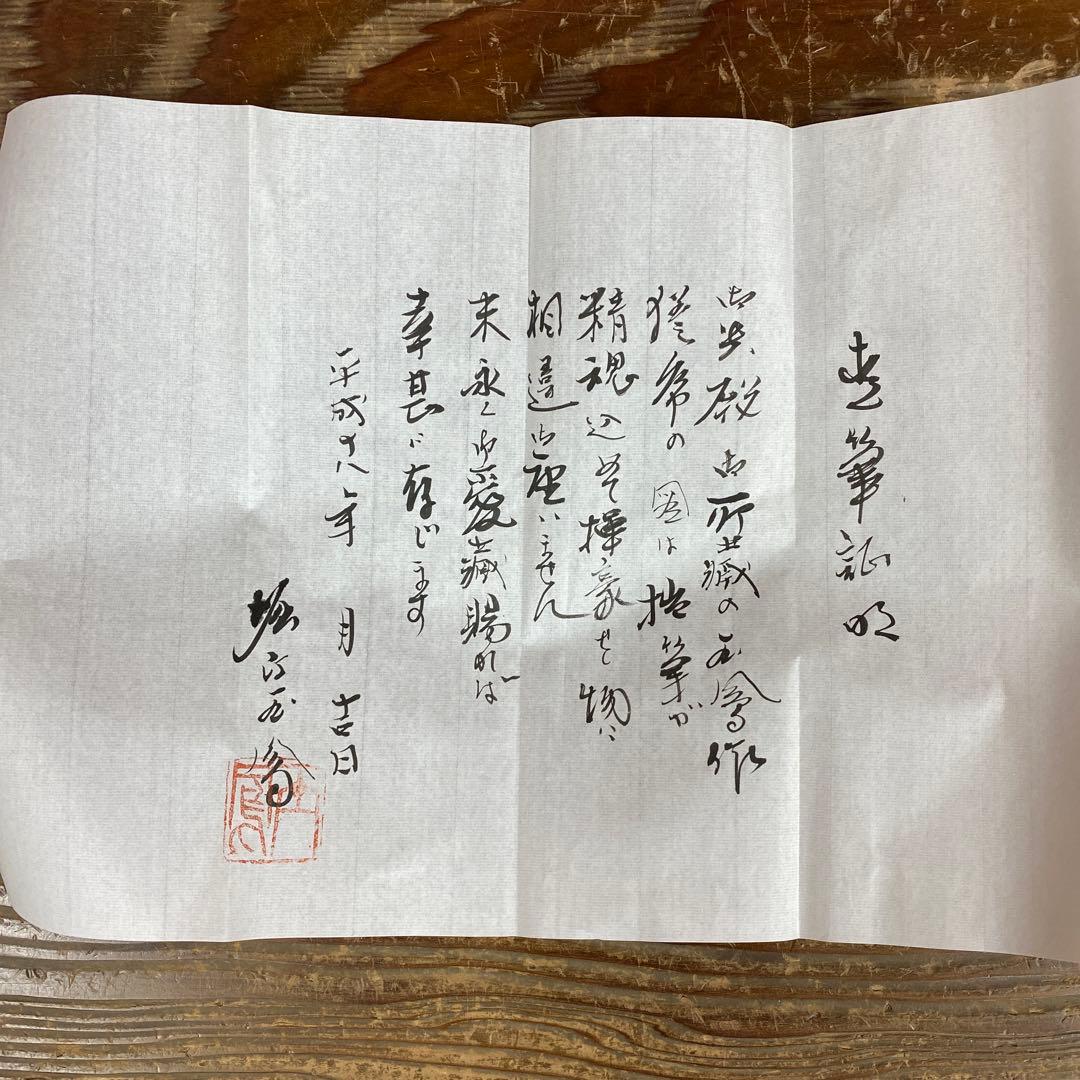 直筆証明
御貴殿御所蔵の玉鳳作
猛虎の図は拙筆が
精魂込めて揮毫せし物に
相違御座いません
末永く御愛蔵賜れば
幸甚に存じます
平成十八年 月 吉日
堀江玉鳳